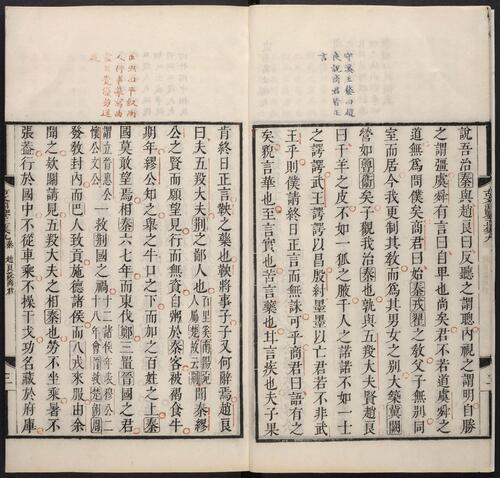 守溪王鏊曰趙
良說商君皆至
言
說吾治秦與趙良曰反聽之謂聰內視之謂明自勝
之謂彊虞舜有言曰自卑也尚矣君不若道虞舜之
道無為問僕矣商君曰始秦戎翟之教父子無別同
室而居今我更制其教而為其男女之別大築冀闕
營如魯衛矣子觀我治秦也孰與五羖大夫賢趙良
曰千羊之皮不如一狐之腋千人之諾諾不如一士
之諤諤武王諤諤以昌殷紂墨墨以亡君若不非武
王乎則僕請終日正言而無誅可乎商君曰語有之
矣貌言華也至言實也苦言藥也甘言疾也夫子果
肯終日正言鞅之藥也鞅將事子子又何辭焉趙良
曰夫五羖大夫荊之鄙人也百里奚南陽宛人屬楚故云荊聞秦繆
公之賢而願望見行而無資自鬻於秦客被褐食牛
期年繆公知之舉之牛口之下而加之百姓之上秦
國莫敢望焉相秦六七年而東伐鄭三置晉國之君
謂立晉惠公懷公文公一救荊國之禍十二諸侯年表穆公二十八年會晉救楚朝周
發教封內而巴人致貢施德諸侯而八戎來服由余
聞之欵關請見五羖大夫之相秦也勞不坐乘暑不
張蓋行於國中不從車乘不操干戈功名藏於府庫
趙良說商君
三